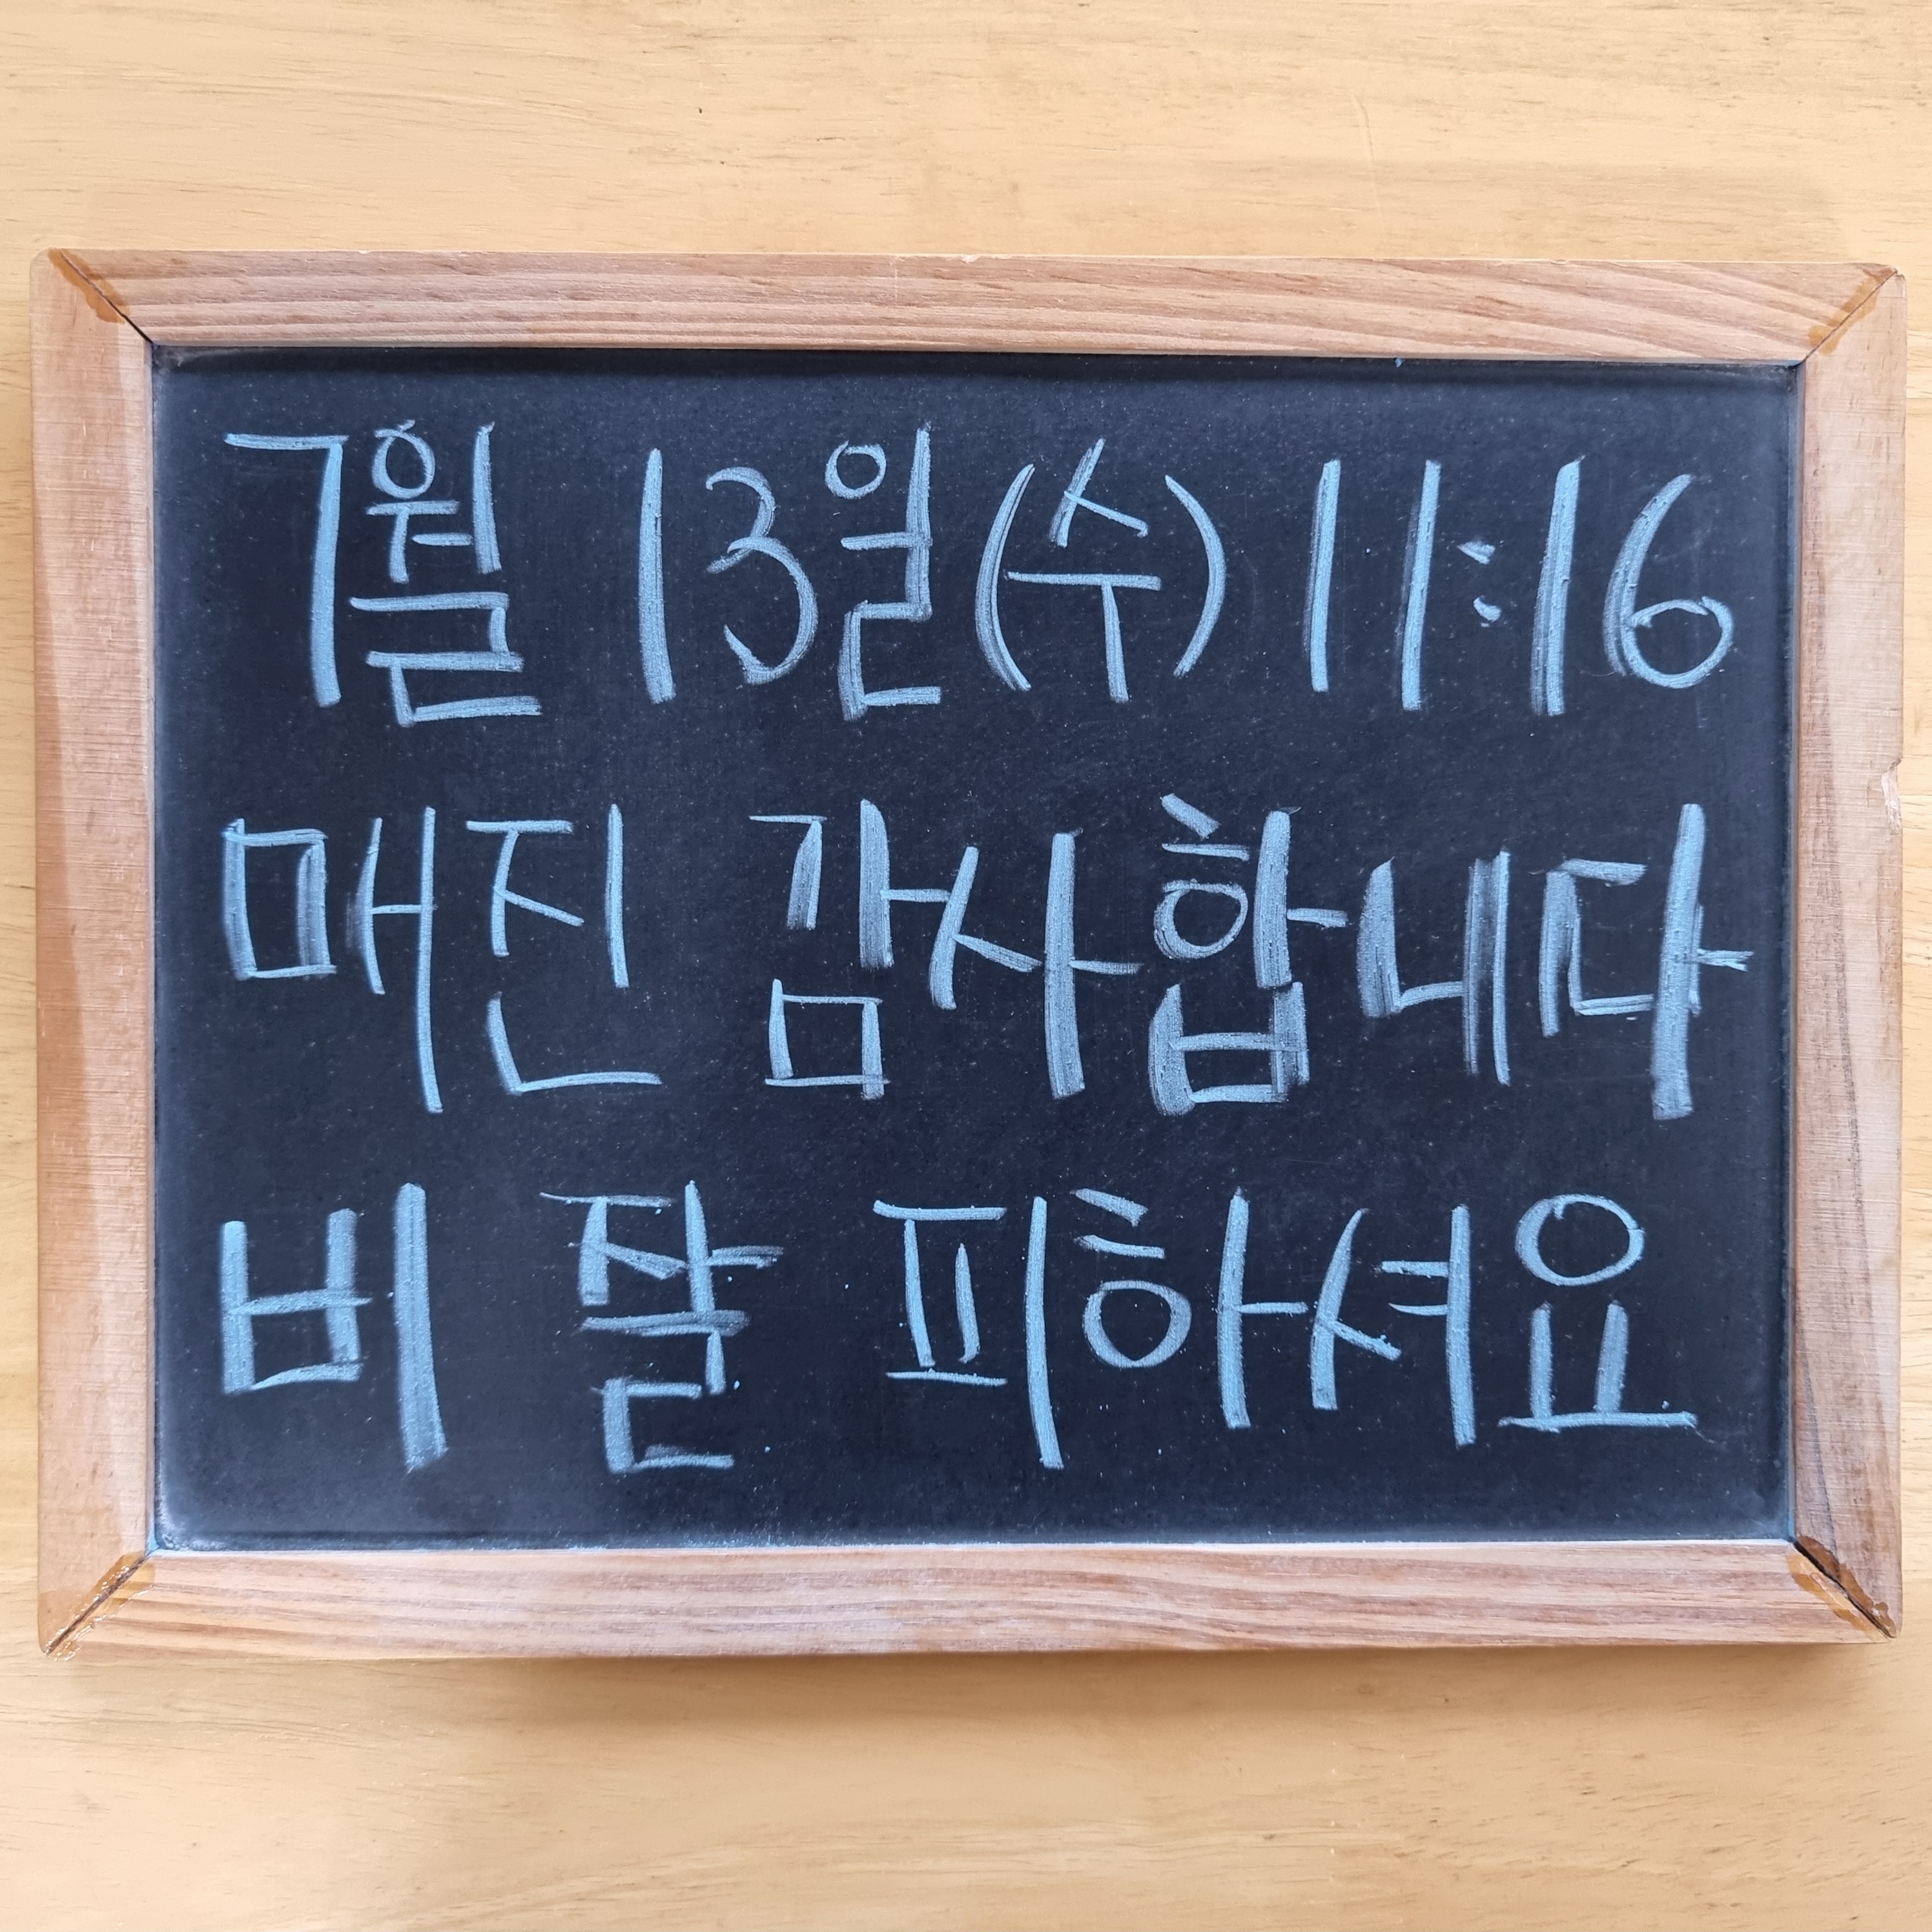 7월 13일(수) 11:16
매진 감사합니다
비 잘 피하셔요